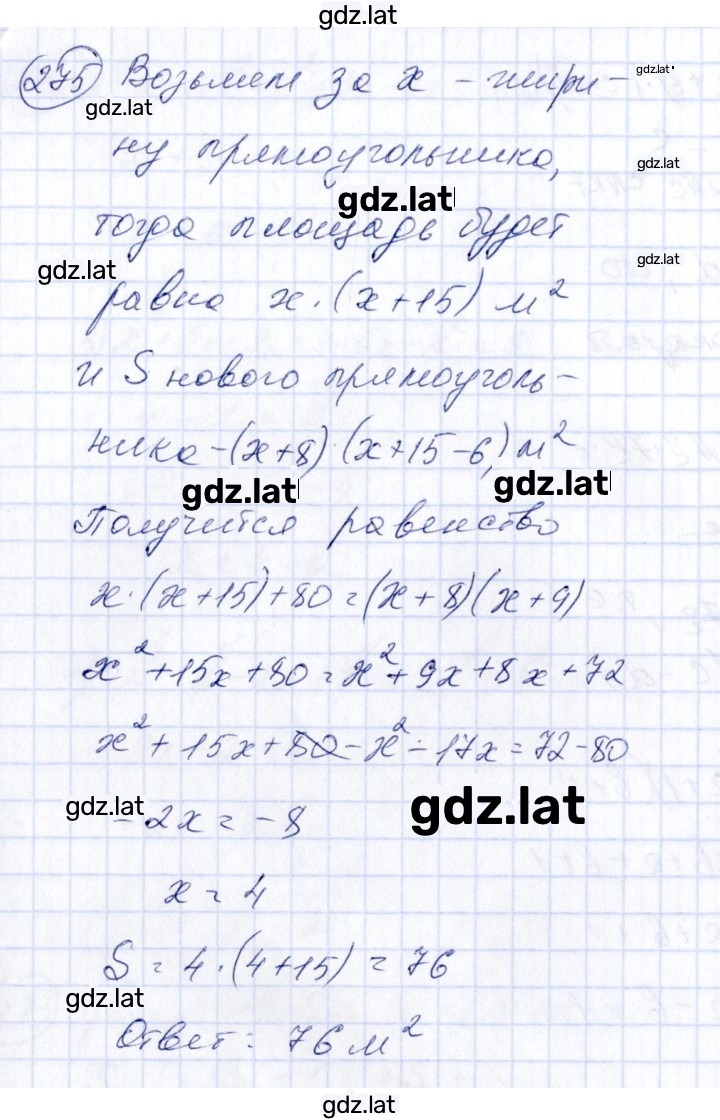 gdz.lat
275 Возьмем за x – шири- gdz.lat
gdz.lat
ну прямоугольника, gdz.lat
gdz.lat
тогда площадь будет
gdz.lat gdz.lat
равна x·(x+15) м²
и S нового прямоуголь-
ника – (x+8)·(x+15-6) м²
gdz.lat gdz.lat
Получится равенство
x·(x+15)+80=(x+8)(x+9)
x²+15x+80=x²+9x+8x+72
x²+15x+80-x²-17x=72-80
gdz.lat gdz.lat
-2x=-8
x=4
S=4·(4+15)=76
gdz.lat
Ответ: 76 м²
gdz.lat